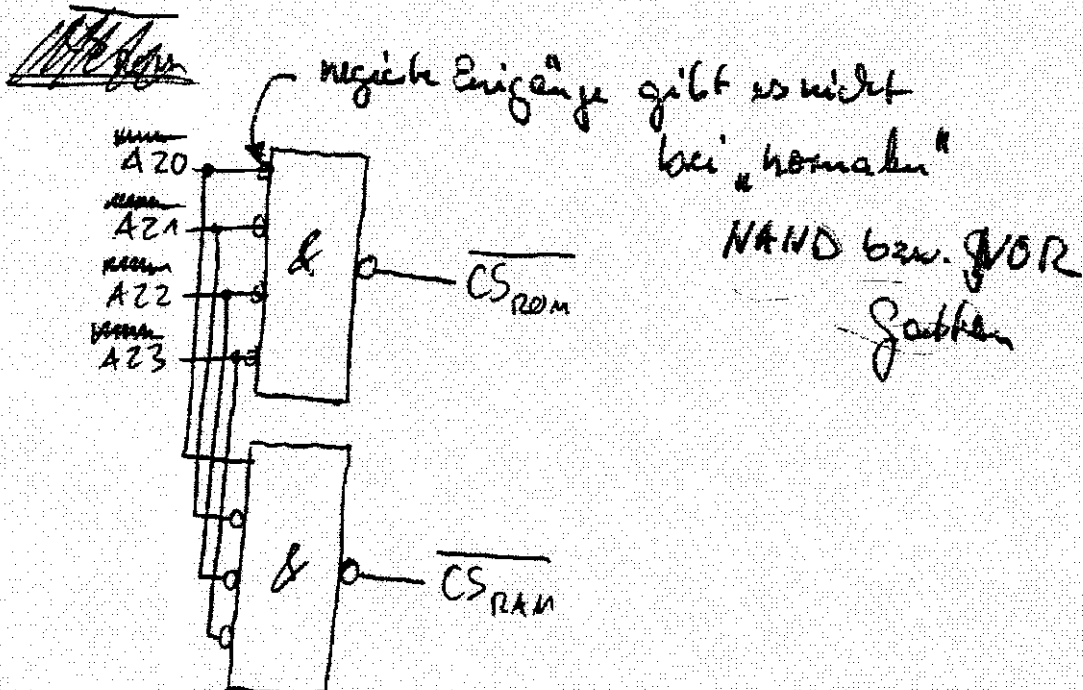 negierte Eingänge gibt es nicht
bei „normalen"
NAND bzw. NOR
Gattern
A20
A21
A22
A23
&
CS ROM
&
CS RAM